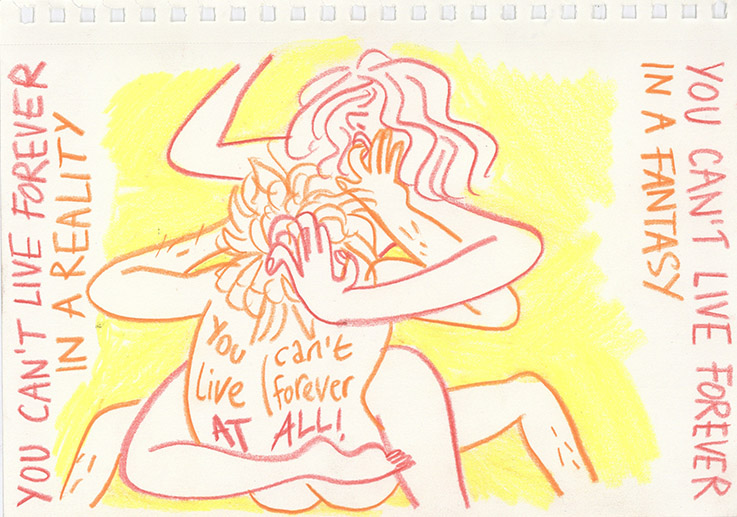 YOU CAN'T LIVE FOREVER
IN A REALITY
You can't
live forever
AT ALL!
YOU CAN'T LIVE FOREVER
IN A FANTASY